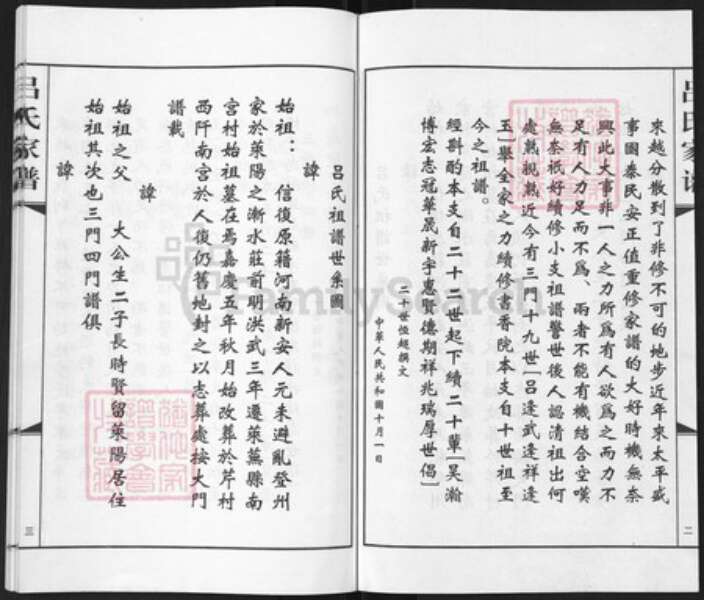 呂氏家譜
來越分散到了非修不可的地步近年來太平盛
事國泰民安正值重修家譜的大好時機無奈
興此大事非一人之力所為有人欲為之而力不
足有人力足而不為、兩者不能有機結合空嘆
無奈衹好續修小支祖譜警世後人認清祖出何
處戲視熟近今有三門十九世「呂逢武逢祥逢
玉」舉全家之力續修書香院本支自十世祖至
今之祖譜。
經斟酌本支自二十一世起下續二十輩「昊瀚
博宏志冠華晟新宇惠賢德期祥兆瑞厚世倡」
二十世恆超撰文
中華人民共和國十月一日
二
呂氏祖譜世系圖
諱
始祖： 信復原籍河南新安人元末避亂登州
家於萊陽之漸水莊前明洪武三年遷萊蕪縣南
宮村始祖墓在焉嘉慶五年秋月始改葬於芹村
西阡南宮於人復仍舊地封之以志葬處按大門
譜載
諱
始祖之父 大公生二子長時賢留萊陽居住
始祖其次也三門四門譜俱
諱
呂氏家譜
三
FamilySearch